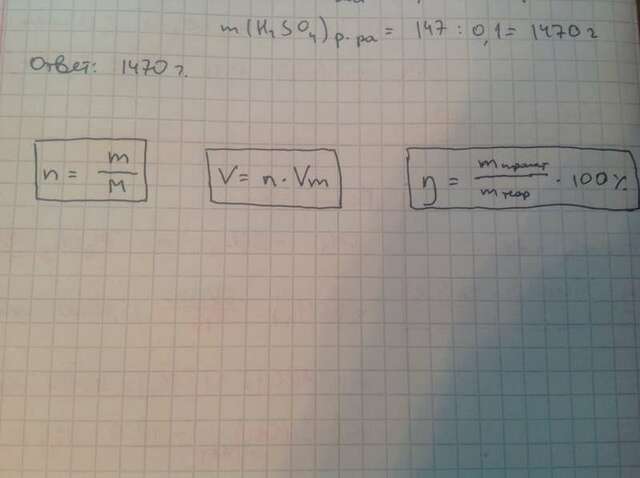 m(H₂SO₄)р-ра = 147 : 0,1 = 1470 г
Ответ: 1470 г.
n = m/M
V = n · Vm
η = mпракт/mтеор · 100%